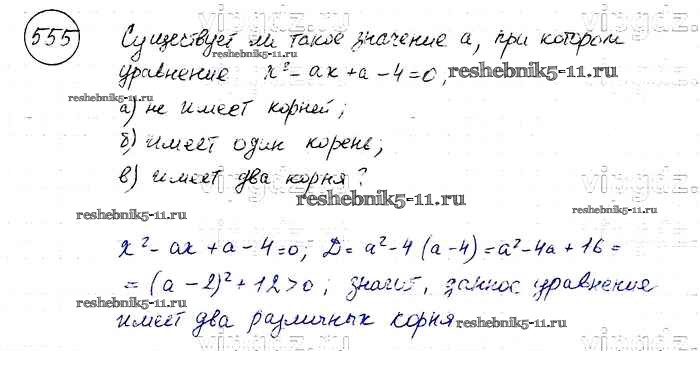 555 Существует ли такое значение a, при котором
уравнение x² - ax + a - 4 = 0,
а) не имеет корней;
б) имеет один корень;
в) имеет два корня?
x² - ax + a - 4 = 0; D = a² - 4(a - 4) = a² - 4a + 16 =
= (a - 2)² + 12 > 0; значит, данное уравнение
имеет два различных корня
reshebnik5-11.ru
reshebnik5-11.ru
reshebnik5-11.ru
reshebnik5-11.ru
reshebnik5-11.ru
reshebnik5-11.ru
reshebnik5-11.ru
reshebnik5-11.ru
vipgdz.ru
vipgdz.ru
vipgdz.ru
vipgdz.ru